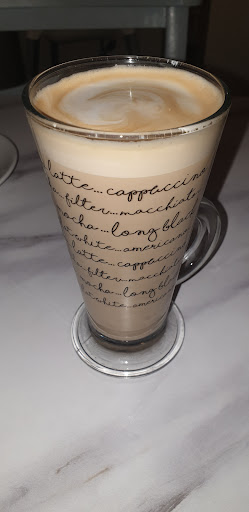 latte... cappuccino
filter... macchiato
mocha... long black
white... americano
latte... cappuccino
filter... macchiato
mocha... long black
white... american